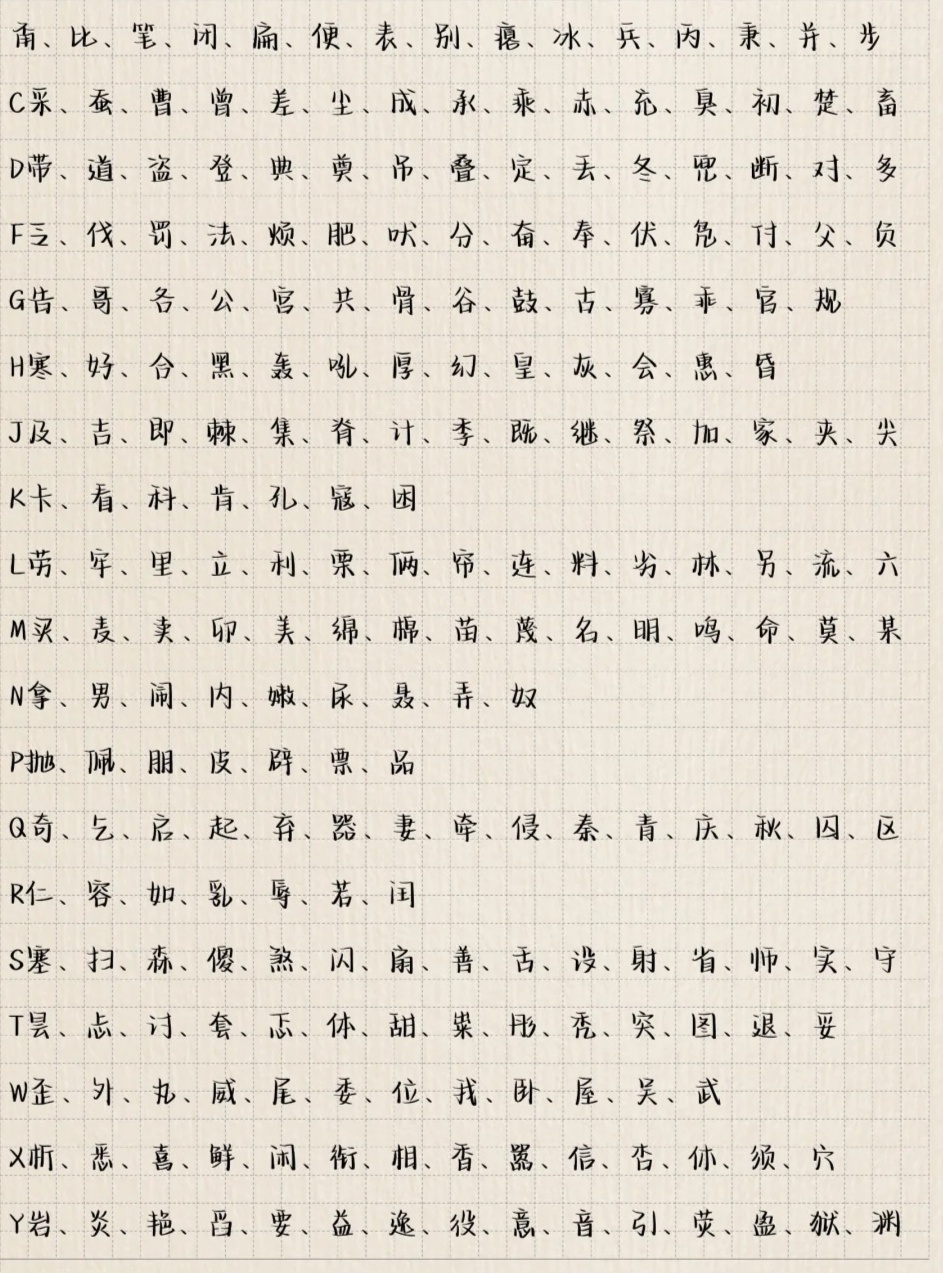 甭、比、笔、闭、扁、便、表、别、瘪、冰、兵、丙、秉、并、步
C采、蚕、曹、曾、差、尘、成、承、乘、赤、充、臭、初、楚、畜
D带、道、盗、登、典、奠、吊、叠、定、丢、冬、兜、断、对、多
F乏、伐、罚、法、烦、肥、吠、分、奋、奉、伏、凫、付、父、负
G告、哥、各、公、宫、共、骨、谷、鼓、古、寡、乖、官、规
H寒、好、合、黑、轰、吼、厚、幻、皇、灰、会、惠、昏
J及、吉、即、棘、集、脊、计、季、既、继、祭、加、家、夹、尖
K卡、看、科、肯、孔、寇、困
L劳、牢、里、立、利、栗、俩、帘、连、料、劣、林、另、流、六
M买、麦、卖、卯、美、绵、棉、苗、蔑、名、明、鸣、命、莫、某
N拿、男、闹、内、嫩、尿、聂、弄、奴
P抛、佩、朋、皮、辟、票、品
Q奇、乞、启、起、弃、器、妻、牵、侵、秦、青、庆、秋、囚、区
R仁、容、如、乳、辱、若、闰
S塞、扫、森、傻、煞、闪、扇、善、舌、设、射、省、师、实、守
T昙、忐、讨、套、忑、体、甜、粜、彤、秃、突、图、退、妥
W歪、外、丸、威、尾、委、位、我、卧、屋、吴、武
X析、悉、喜、鲜、闲、衔、相、香、嚣、信、杏、休、须、穴
Y岩、炎、艳、舀、要、益、逸、役、意、音、引、荧、盈、狱、渊